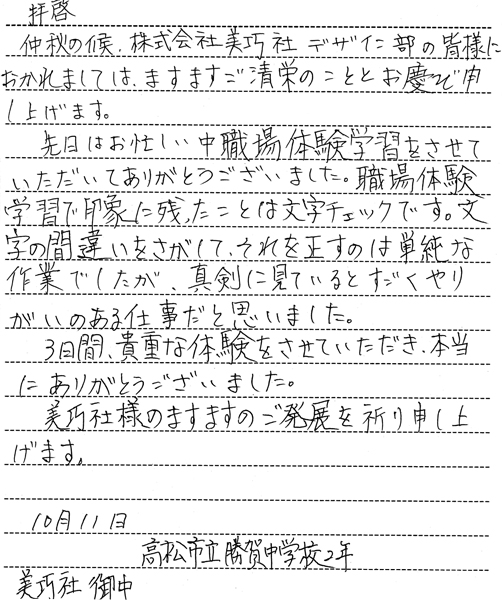 拝啓
仲秋の候、株式会社美巧社 デザイン部の皆様に
おかれましては、ますますご清栄のこととお慶び申
し上げます。
先日はお忙しい中職場体験学習をさせて
いただいてありがとうございました。職場体験
学習で印象に残ったことは文字チェックです。文
字の間違いをさがして、それを正すのは単純な
作業でしたが、真剣に見ているとすごくやり
がいのある仕事だと思いました。
3日間、貴重な体験をさせていただき、本当
にありがとうございました。
美巧社様のますますのご発展を祈り申し上
げます。
10月11日
高松市立勝賀中学校2年
美巧社 御中